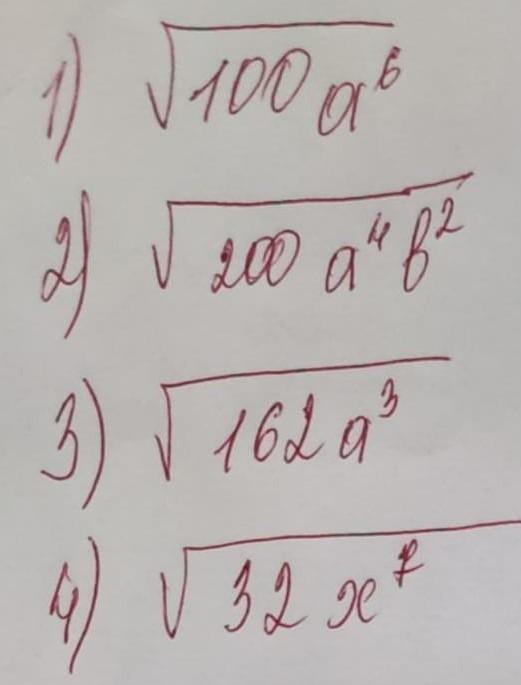 1) √100a⁶
2) √200a⁴b²
3) √162a³
4) √32x⁷